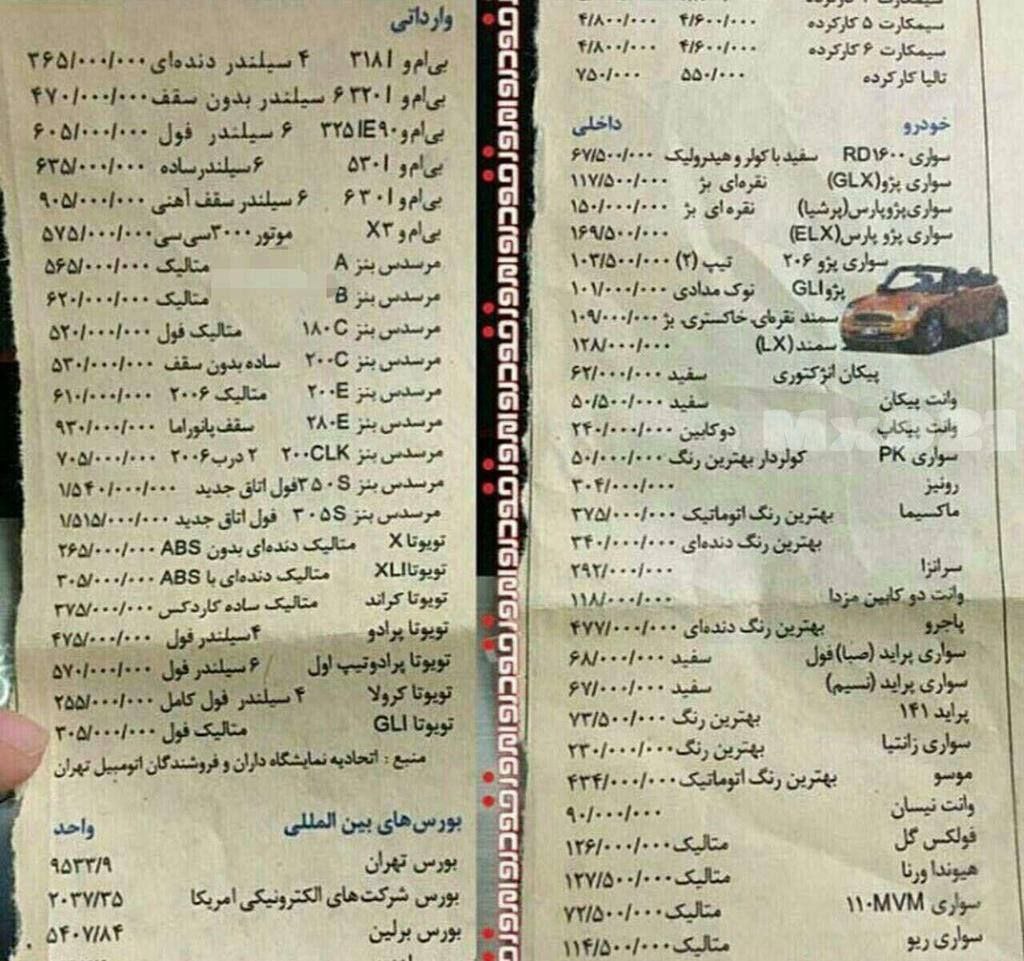 سیمکارت ۵ کارکرده ۴/۶۰۰/۰۰۰ ۴/۸۰۰/۰۰۰
سیمکارت ۶ کارکرده ۴/۶۰۰/۰۰۰ ۴/۸۰۰/۰۰۰
تالیا کارکرده ۵۵۰/۰۰۰ ۷۵۰/۰۰۰
خودرو داخلی
سواری RD۱۶۰۰ سفید با کولر و هیدرولیک ۶۷/۵۰۰/۰۰۰
سواری پژو(GLX) نقره‌ای بژ ۱۱۷/۵۰۰/۰۰۰
سواری‌پژوپارس(پرشیا) نقره‌ای بژ ۱۵۰/۰۰۰/۰۰۰
سواری پژو پارس(ELX) ۱۶۹/۵۰۰/۰۰۰
سواری پژو ۲۰۶ تیپ (۲) ۱۰۳/۵۰۰/۰۰۰
پژوGLI نوک مدادی ۱۰۱/۰۰۰/۰۰۰
سمند نقره‌ای، خاکستری، بژ ۱۰۹/۰۰۰/۰۰۰
سمند(LX) ۱۲۸/۰۰۰/۰۰۰
پیکان انژکتوری سفید ۶۲/۰۰۰/۰۰۰
وانت پیکان سفید ۵۰/۵۰۰/۰۰۰
وانت پیکاپ دوکابین ۲۴۰/۰۰۰/۰۰۰
سواری PK کولردار بهترین رنگ ۵۰/۰۰۰/۰۰۰
رونیز ۳۰۴/۰۰۰/۰۰۰
ماکسیما بهترین رنگ اتوماتیک ۳۷۵/۰۰۰/۰۰۰
بهترین رنگ دنده‌ای ۳۴۰/۰۰۰/۰۰۰
سرانزا ۲۹۲/۰۰۰/۰۰۰
وانت دو کابین مزدا ۱۱۸/۰۰۰/۰۰۰
پاجرو بهترین رنگ دنده‌ای ۴۷۷/۰۰۰/۰۰۰
سواری پراید (صبا)فول سفید ۶۸/۰۰۰/۰۰۰
سواری پراید (نسیم) سفید ۶۷/۰۰۰/۰۰۰
پراید ۱۴۱ بهترین رنگ ۷۳/۵۰۰/۰۰۰
سواری زانتیا بهترین رنگ ۲۳۰/۰۰۰/۰۰۰
موسو بهترین رنگ اتوماتیک ۴۳۴/۰۰۰/۰۰۰
وانت نیسان ۹۰/۰۰۰/۰۰۰
فولکس گل متالیک ۱۲۶/۰۰۰/۰۰۰
هیوندا ورنا متالیک ۱۲۷/۵۰۰/۰۰۰
سواری ۱۱۰MVM متالیک ۷۲/۵۰۰/۰۰۰
سواری ریو متالیک ۱۱۴/۵۰۰/۰۰۰
وارداتی
بی‌ام‌و ۳۱۸I ۴ سیلندر دنده‌ای ۳۶۵/۰۰۰/۰۰۰
بی‌ام‌و ۳۲۰I ۶ سیلندر بدون سقف ۴۷۰/۰۰۰/۰۰۰
بی‌ام‌و ۳۲۵IE۹۰ ۶ سیلندر فول ۶۰۵/۰۰۰/۰۰۰
بی‌ام‌و ۵۳۰I ۶سیلندر ساده ۶۳۵/۰۰۰/۰۰۰
بی‌ام‌و ۶۳۰I ۶ سیلندر سقف آهنی ۹۰۵/۰۰۰/۰۰۰
بی‌ام‌و X۳ موتور ۳۰۰۰سی‌سی ۵۷۵/۰۰۰/۰۰۰
مرسدس بنز A متالیک ۵۶۵/۰۰۰/۰۰۰
مرسدس بنز B متالیک ۶۲۰/۰۰۰/۰۰۰
مرسدس بنز ۱۸۰C متالیک فول ۵۲۰/۰۰۰/۰۰۰
مرسدس بنز ۲۰۰C ساده بدون سقف ۵۳۰/۰۰۰/۰۰۰
مرسدس بنز ۲۰۰E متالیک ۲۰۰۶ ۶۱۰/۰۰۰/۰۰۰
مرسدس بنز ۲۸۰E سقف پانوراما ۹۳۰/۰۰۰/۰۰۰
مرسدس بنز ۲۰۰CLK ۲ درب ۲۰۰۶ ۷۰۵/۰۰۰/۰۰۰
مرسدس بنز ۳۵۰S فول اتاق جدید ۱/۵۴۰/۰۰۰/۰۰۰
مرسدس بنز ۳۰۵S فول اتاق جدید ۱/۵۱۵/۰۰۰/۰۰۰
تویوتا X متالیک دنده‌ای بدون ABS ۲۶۵/۰۰۰/۰۰۰
تویوتا XLI متالیک دنده‌ای با ABS ۳۰۵/۰۰۰/۰۰۰
تویوتا کراند متالیک ساده کاردکس ۳۷۵/۰۰۰/۰۰۰
تویوتا پرادو ۴سیلندر فول ۴۷۵/۰۰۰/۰۰۰
تویوتا پرادوتیپ اول ۶ سیلندر فول ۵۷۰/۰۰۰/۰۰۰
تویوتا کرولا ۴ سیلندر فول کامل ۲۵۵/۰۰۰/۰۰۰
تویوتا GLI متالیک فول ۳۰۵/۰۰۰/۰۰۰
منبع : اتحادیه نمایشگاه داران و فروشندگان اتومبیل تهران
بورس‌های بین المللی واحد
بورس تهران ۹۵۳۳/۹
بورس شرکت‌های الکترونیکی امریکا ۲۰۳۷/۳۵
بورس برلین ۵۴۰۷/۸۴